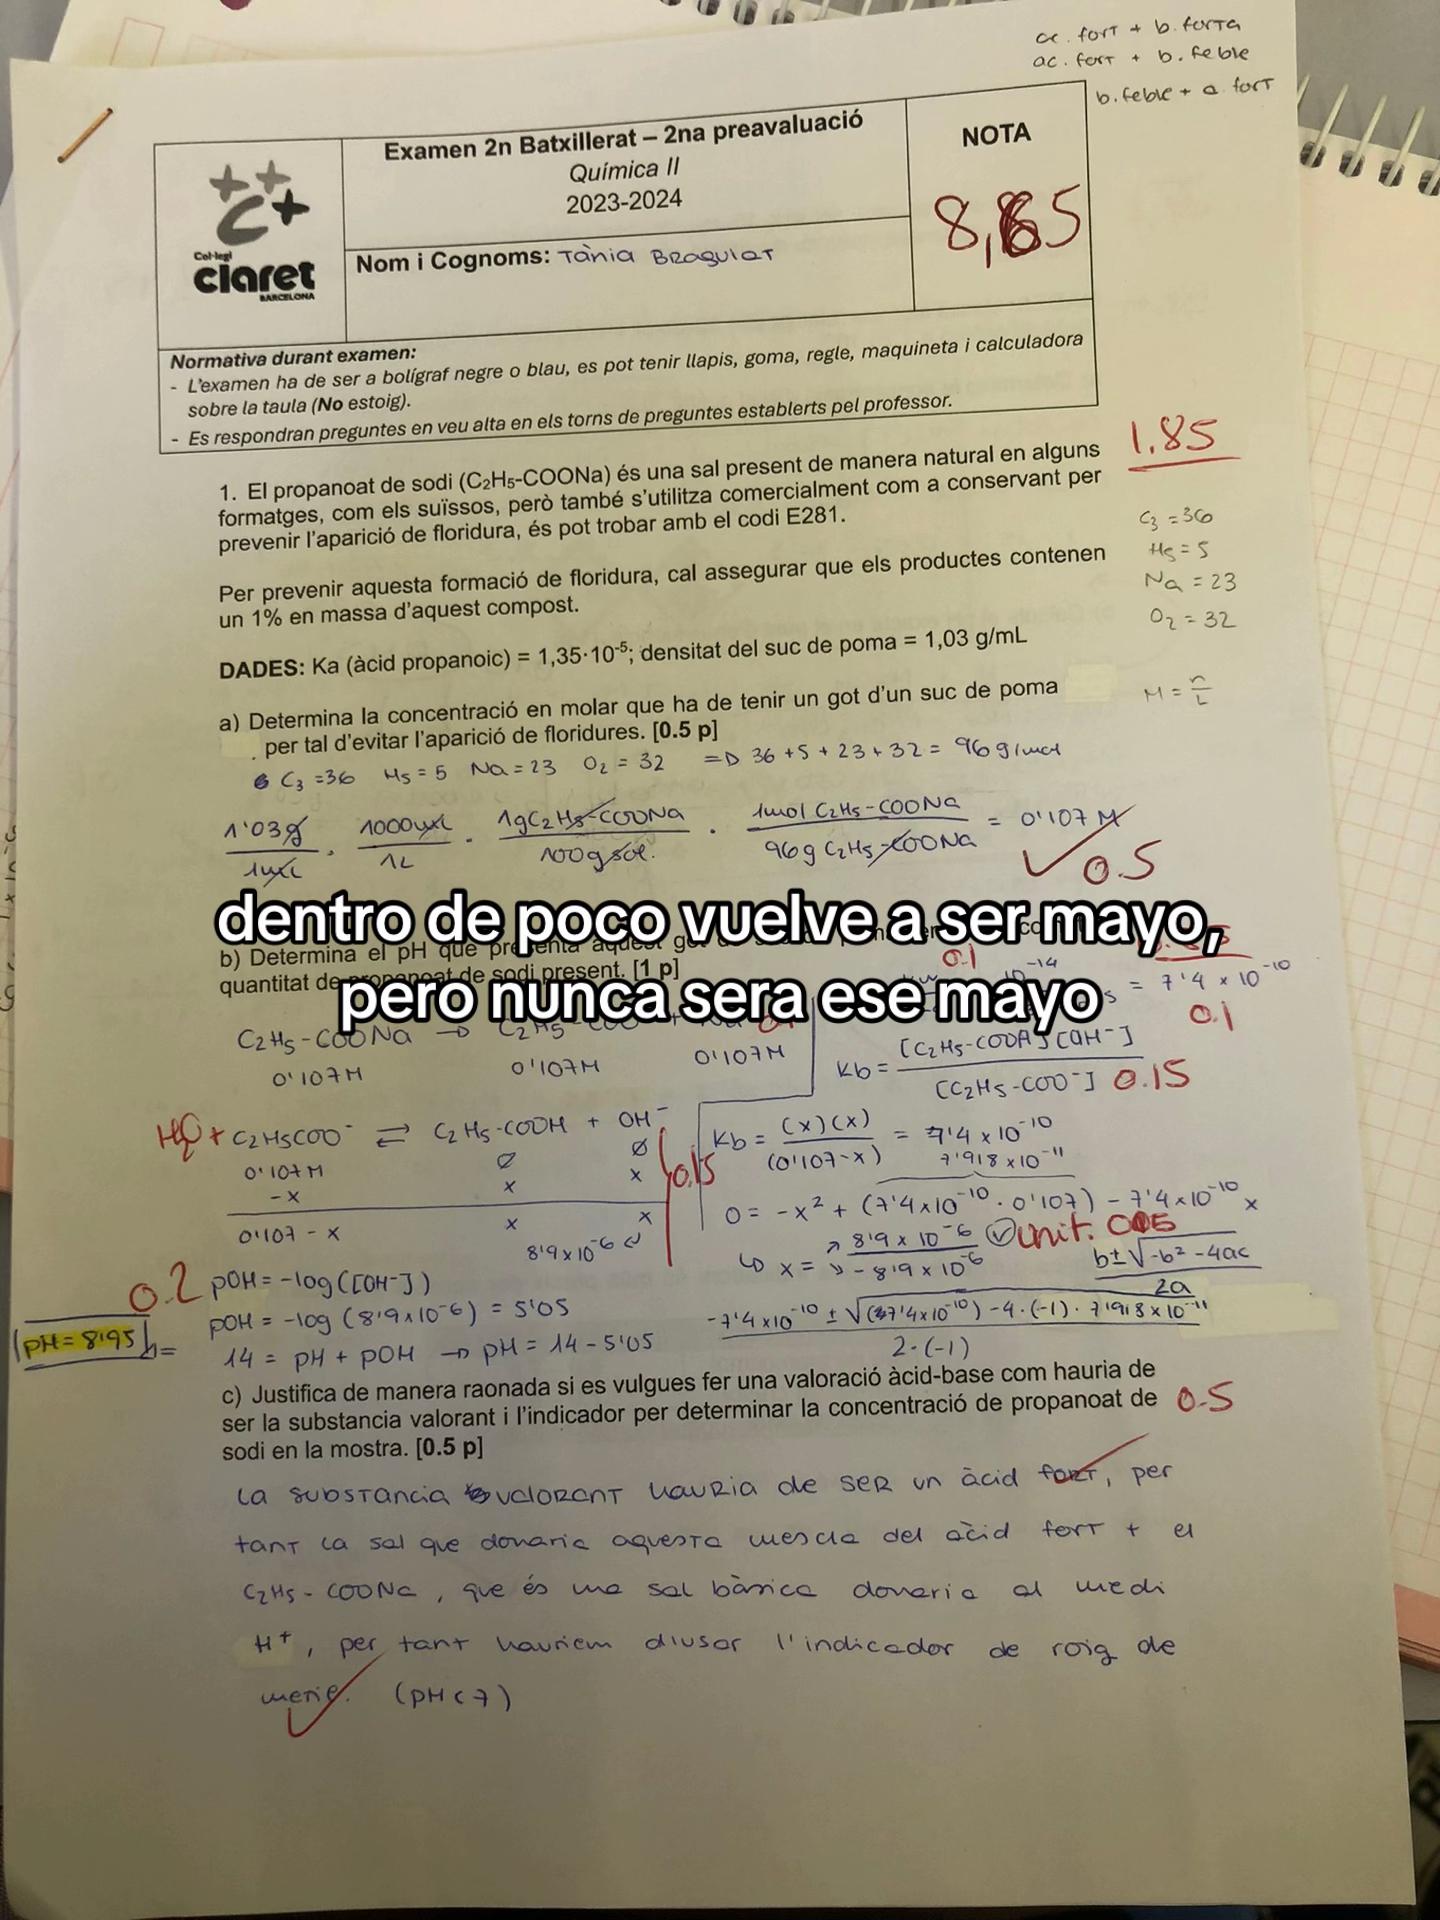 ac. fort + b. forta
ac. fort + b. feble
b. feble + a. fort
Examen 2n Batxillerat – 2na preavaluació
Química II
2023-2024
NOTA
8,65
Col·legi
claret
BARCELONA
Nom i Cognoms: Tània Bragulat
Normativa durant examen:
- L'examen ha de ser a bolígraf negre o blau, es pot tenir llapis, goma, regle, maquineta i calculadora
sobre la taula (No estoig).
- Es respondran preguntes en veu alta en els torns de preguntes establerts pel professor.
1.85
1. El propanoat de sodi (C₂H₅-COONa) és una sal present de manera natural en alguns
formatges, com els suïssos, però també s'utilitza comercialment com a conservant per
prevenir l'aparició de floridura, és pot trobar amb el codi E281.
C₃ = 36
H₅ = 5
Na = 23
O₂ = 32
Per prevenir aquesta formació de floridura, cal assegurar que els productes contenen
un 1% en massa d'aquest compost.
DADES: Ka (àcid propanoic) = 1,35·10⁻⁵; densitat del suc de poma = 1,03 g/mL
M = n/L
a) Determina la concentració en molar que ha de tenir un got d'un suc de poma
per tal d'evitar l'aparició de floridures. [0.5 p]
C₃ = 36 H₅ = 5 Na = 23 O₂ = 32 => 36 + 5 + 23 + 32 = 96 g/mol
1'03g/1mL · 1000mL/1L · 1g C₂H₅-COONa/100g sol. · 1mol C₂H₅-COONa/96g C₂H₅-COONa = 0'107 M
0.5
dentro de poco vuelve a ser mayo,
pero nunca sera ese mayo
b) Determina el pH que presenta aquest got
quantitat de propanoat de sodi present. [1 p]
0.1
= 7'4 × 10⁻¹⁰
0.1
C₂H₅-COONa → C₂H₅-COO
0'107M 0'107M 0'107M
Kb = [C₂H₅-COOH][OH⁻]/[C₂H₅-COO⁻] 0.15
H₂O + C₂H₅COO⁻ ⇌ C₂H₅-COOH + OH⁻
0'107M ∅ ∅
-x x x
0'107 - x x x
8'9×10⁻⁶
0.15
Kb = (x)(x)/(0'107-x) = 7'4 × 10⁻¹⁰
7'918 × 10⁻¹¹
0 = -x² + (7'4×10⁻¹⁰ · 0'107) - 7'4×10⁻¹⁰ x
x = 8'9 × 10⁻⁶
- 8'9 × 10⁻⁶
unit. 0.05
b±√-b²-4ac/2a
-7'4×10⁻¹⁰ ± √(7'4×10⁻¹⁰) - 4·(-1)·7'918×10⁻¹¹/2·(-1)
0.2
pOH = -log([OH⁻])
pOH = -log(8'9×10⁻⁶) = 5'05
14 = pH + pOH → pH = 14 - 5'05
pH = 8'95
c) Justifica de manera raonada si es vulgues fer una valoració àcid-base com hauria de
ser la substancia valorant i l'indicador per determinar la concentració de propanoat de
sodi en la mostra. [0.5 p]
0.5
La substancia valorant hauria de ser un àcid fort, per
tant la sal que donaria aquesta mescla del àcid fort + el
C₂H₅-COONa, que és una sal bàsica donaria al medi
H⁺, per tant hauriem d'usar l'indicador de roig de
metil. (pH < 7)